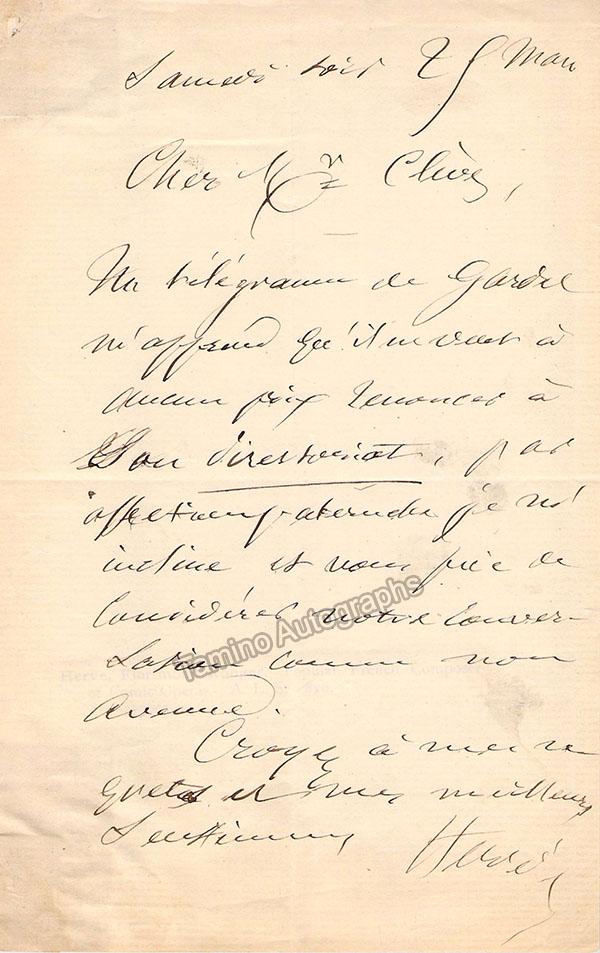 Samedi soir 25 Mars
Cher Mr Clèves,
Un télégramme de Gardel
m'apprend qu'il ne veut à
aucun prix renoncer à
Son directoriat, par
affection paternelle je m'
incline et vous prie de
Considérer notre Conver-
sation comme non
avenue.
Croyez à mes re
grets et mes meilleurs
Sentiments
Hervé
Tamino Autographs